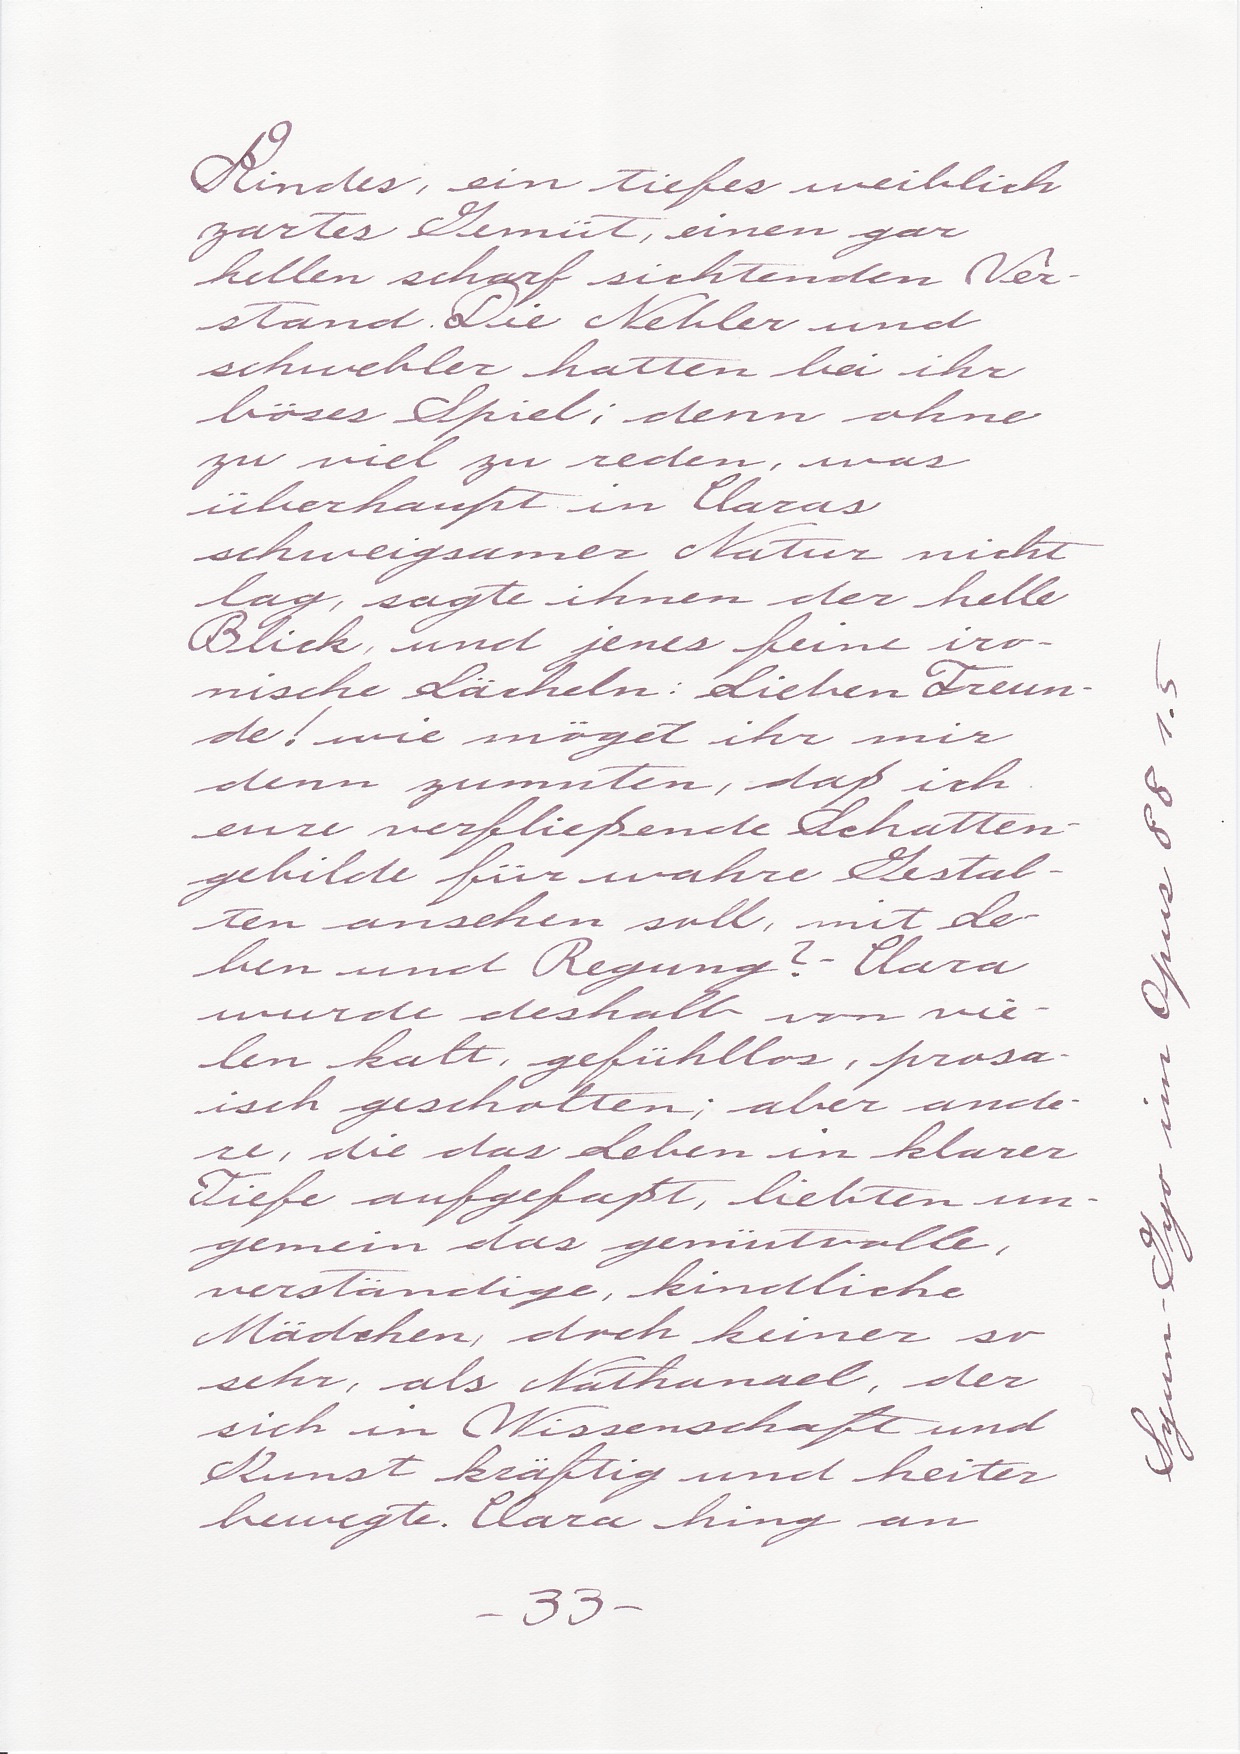 Kindes, ein tiefes weiblich
zartes Gemüt, einen gar
hellen scharf sichtenden Ver-
stand. Die Nebler und
schwebler hatten bei ihr
böses Spiel; denn ohne
zu viel zu reden, was
überhaupt in Claras
schweigsamer Natur nicht
lag, sagte ihnen der helle
Blick, und jenes feine iro-
nische Lächeln: Lieben Freun-
de! wie möget ihr mir
denn zumuten, daß ich
eure verfließende Schatten-
gebilde für wahre Gestal-
ten ansehen soll, mit Le-
ben und Regung?- Clara
wurde deshalb von vie-
len kalt, gefühllos, prosa-
isch gescholten; aber ande-
re, die das Leben in klarer
Tiefe aufgefaßt, liebten un-
gemein das gemütvolle,
verständige, kindliche
Mädchen, doch keiner so
sehr, als Nathanael, der
sich in Wissenschaft und
Kunst kräftig und heiter
bewegte. Clara hing an
-33-
im Opus 88 1.5